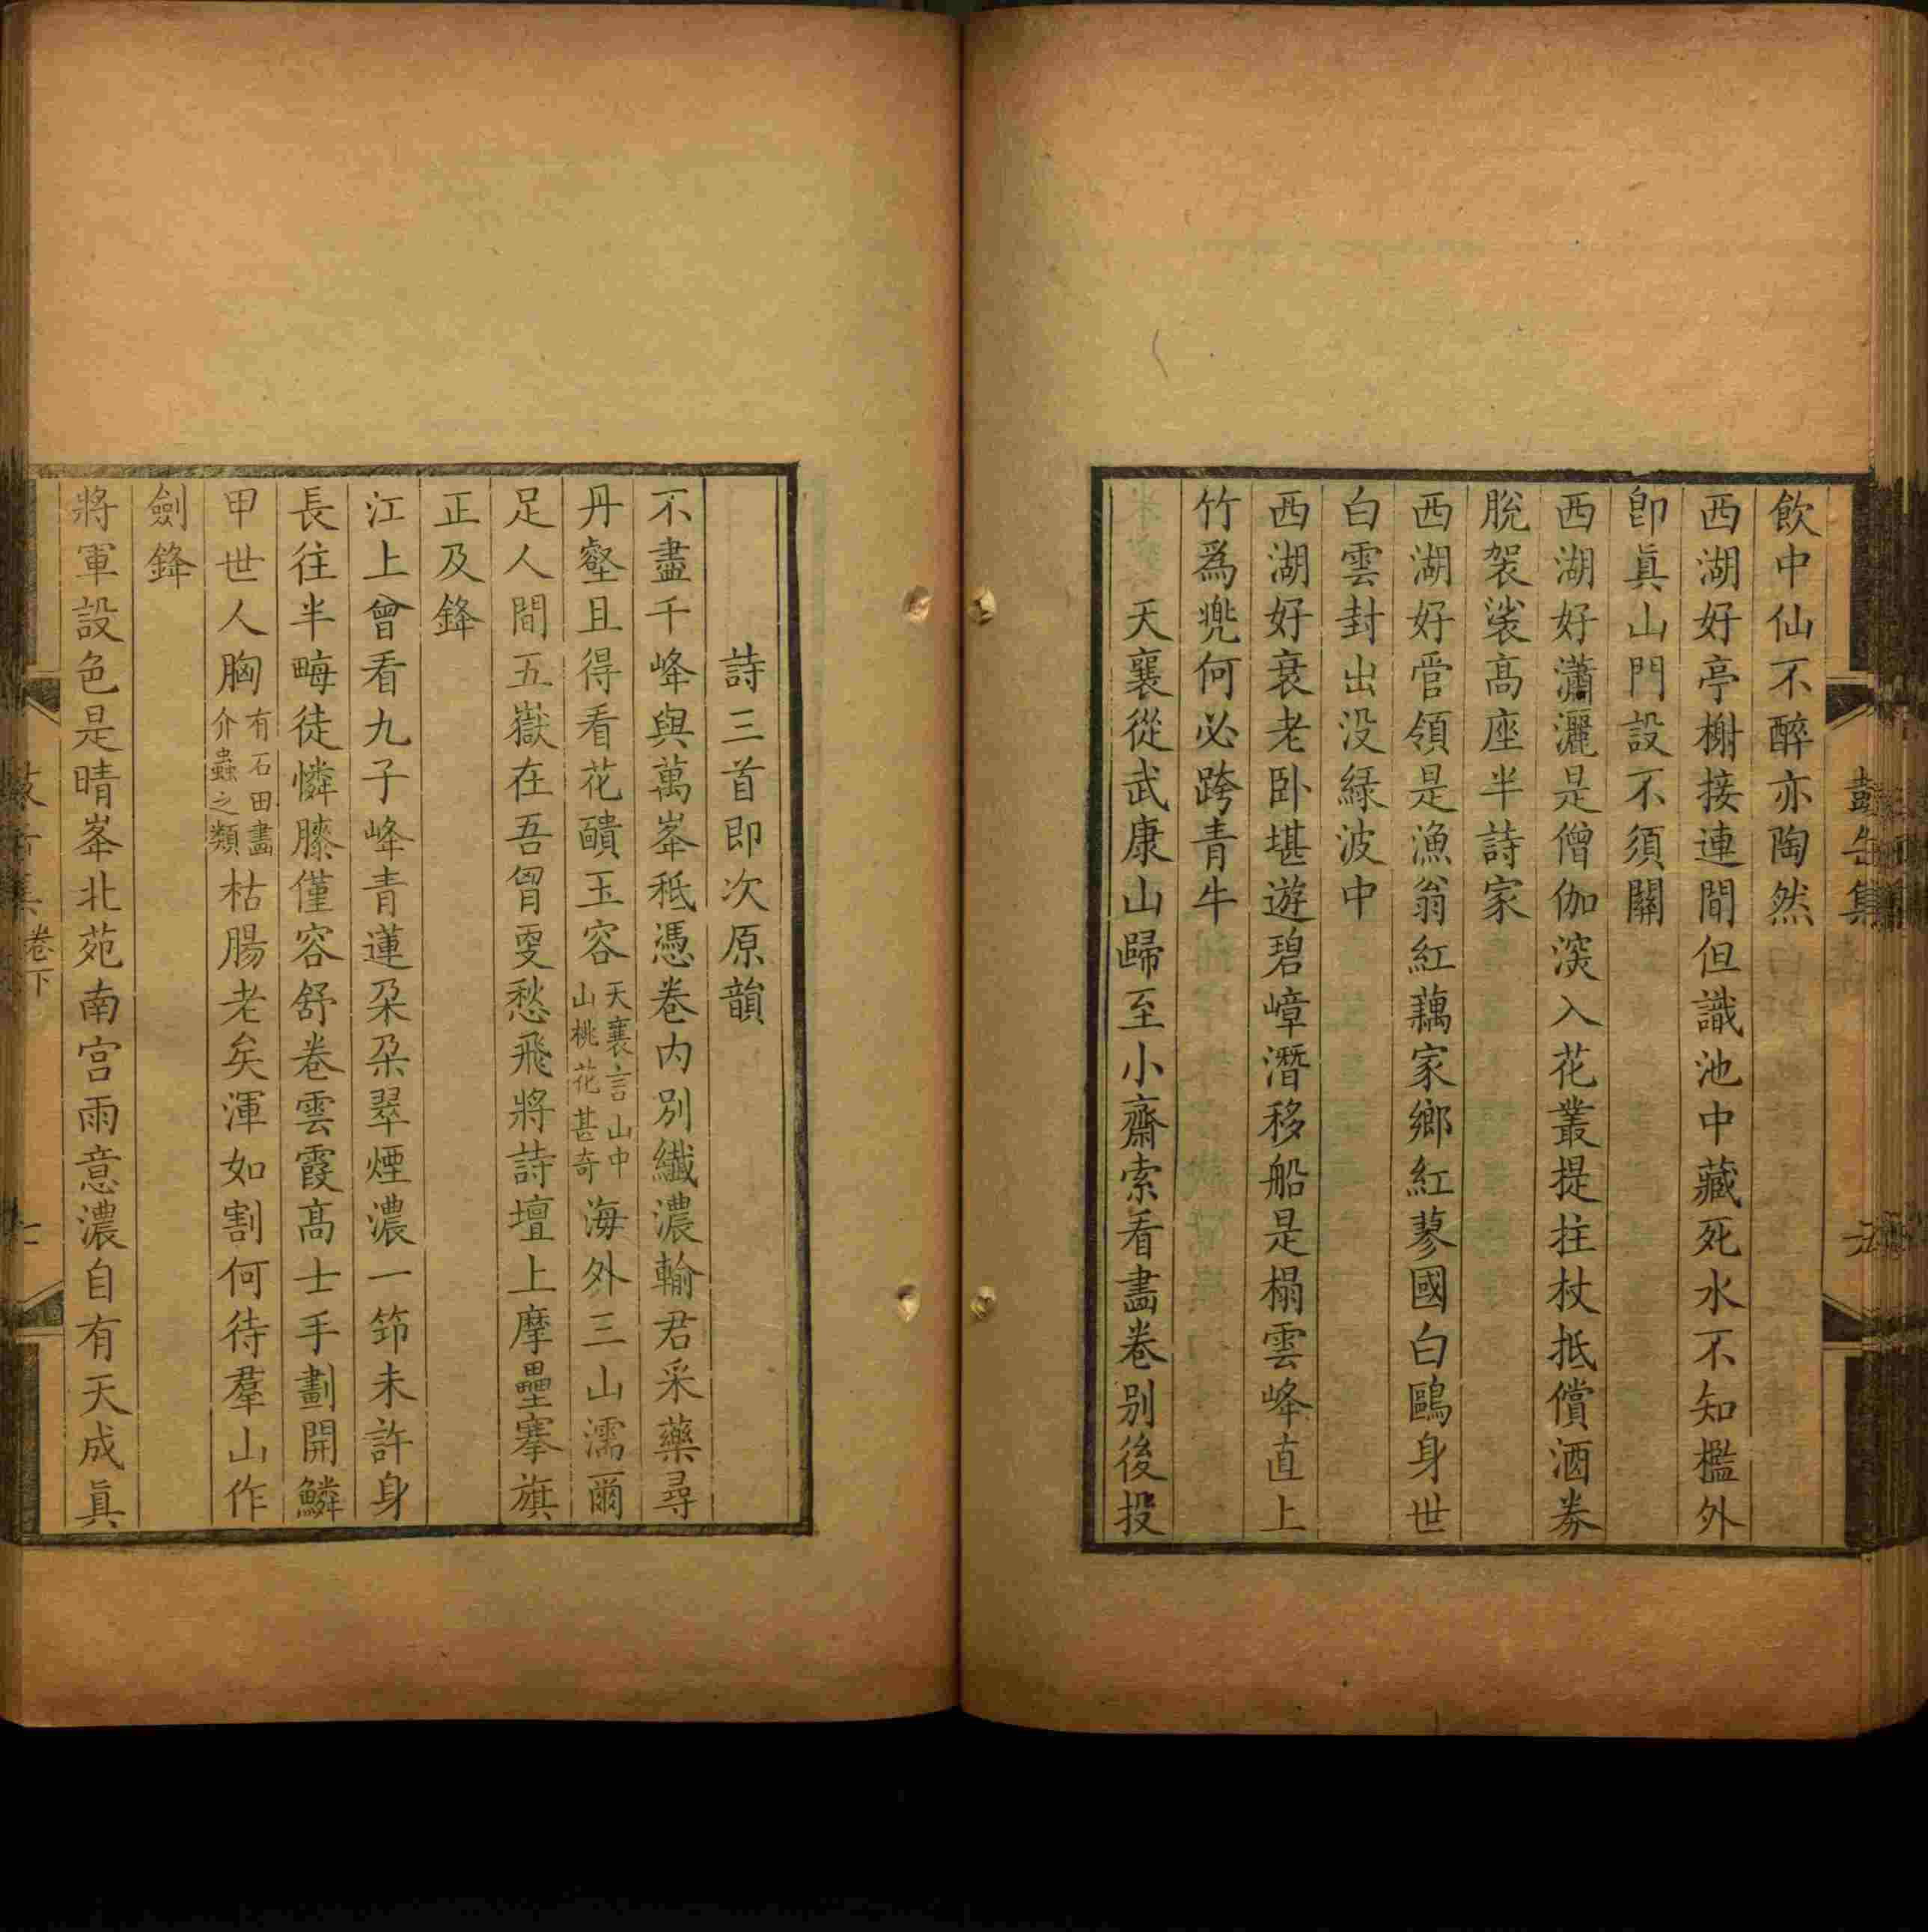 飲中仙不醉亦陶然
西湖好亭榭接連間但識池中藏死水不知檻外
卽眞山門設不須關
西湖好瀟灑是僧伽深入花叢提拄杖抵償酒劵
脫袈裟高座半詩家
西湖好管領是漁翁紅藕家鄉紅蓼國白鷗身世
白雲封出没綠波中
西湖好衰老卧堪遊碧嶂潛移船是榻雲峰直上
竹爲兠何必跨青牛
天襄從武康山歸至小齋索看畵卷別後投
詩三首即次原韻
不盡千峰與萬峯秪憑卷内別纖濃輸君采藥尋
丹壑且得看花靧玉容天襄言山中
山桃花甚奇海外三山濡爾
足人間五嶽在吾胷叓愁飛將詩壇上摩壘搴旗
正及鋒
江上曾看九子峰青蓮朶朶翠煙濃一笻未許身
長往半畮徒憐膝僅容舒卷雲霞高士手劃開鱗
甲世人胸有石田畵
介蟲之類枯腸老矣渾如割何待羣山作
劍鋒
將軍設色是晴峯北苑南宮雨意濃自有天成眞
卷下